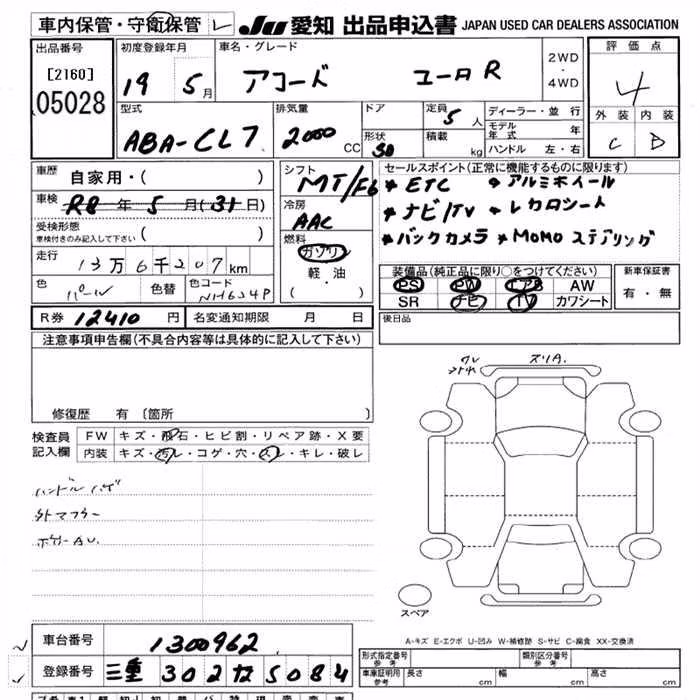 車内保管・守衛保管 レ JU 愛知 出品申込書 JAPAN USED CAR DEALERS ASSOCIATION
出品番号 初度登録年月 車名・グレード 2WD・4WD 評価点
[2160] 19 5月 アコード ユーロR 4
05028
型式 排気量 ドア 定員 5人 ディーラー・並行 外装 内装
ABA-CL7 2000CC 形状 SD 積載 kg モデル年式 年 C D
ハンドル 左・右
車歴 自家用・( ) シフト MT/F6 セールスポイント(正常に機能するものに限ります)
車検 R8年5月(31日) 冷房 AAC * ETC * アルミホイール
受検形態 車検付きのみ記入して下さい ( ) * ナビ/TV * レカロシート
走行 13万6千207km 燃料 ガソリン 軽・油 ・( ) * バックカメラ * MOMO ステアリング
色 パール 色替 色コード NH624P 装備品(純正品に限り○をつけてください) 新車保証書
PS PW エアB AW 有・無
SR ナビ TV カワシート
R券 12410円 名変通知期限 月 日 後日品
注意事項申告欄(不具合内容等は具体的に記入して下さい)
修復歴 有 〔箇所 〕
検査員記入欄 FW キズ・飛石・ヒビ割・リペア跡・X要
内装 キズ・汚レ・コゲ・穴・スレ・キレ・破レ
スリA.
ハンドル ハゲ
外マフラー
ボデーAU.
スペア
A-キズ E-エクボ U-凹み W-補修跡 S-サビ C-腐食 XX-交換済
車台番号 1300962 形式指定番号 参考 類別区分番号 参考
登録番号 三重 302 せ 5084 車庫証明用 参考 長さ 幅 高さ